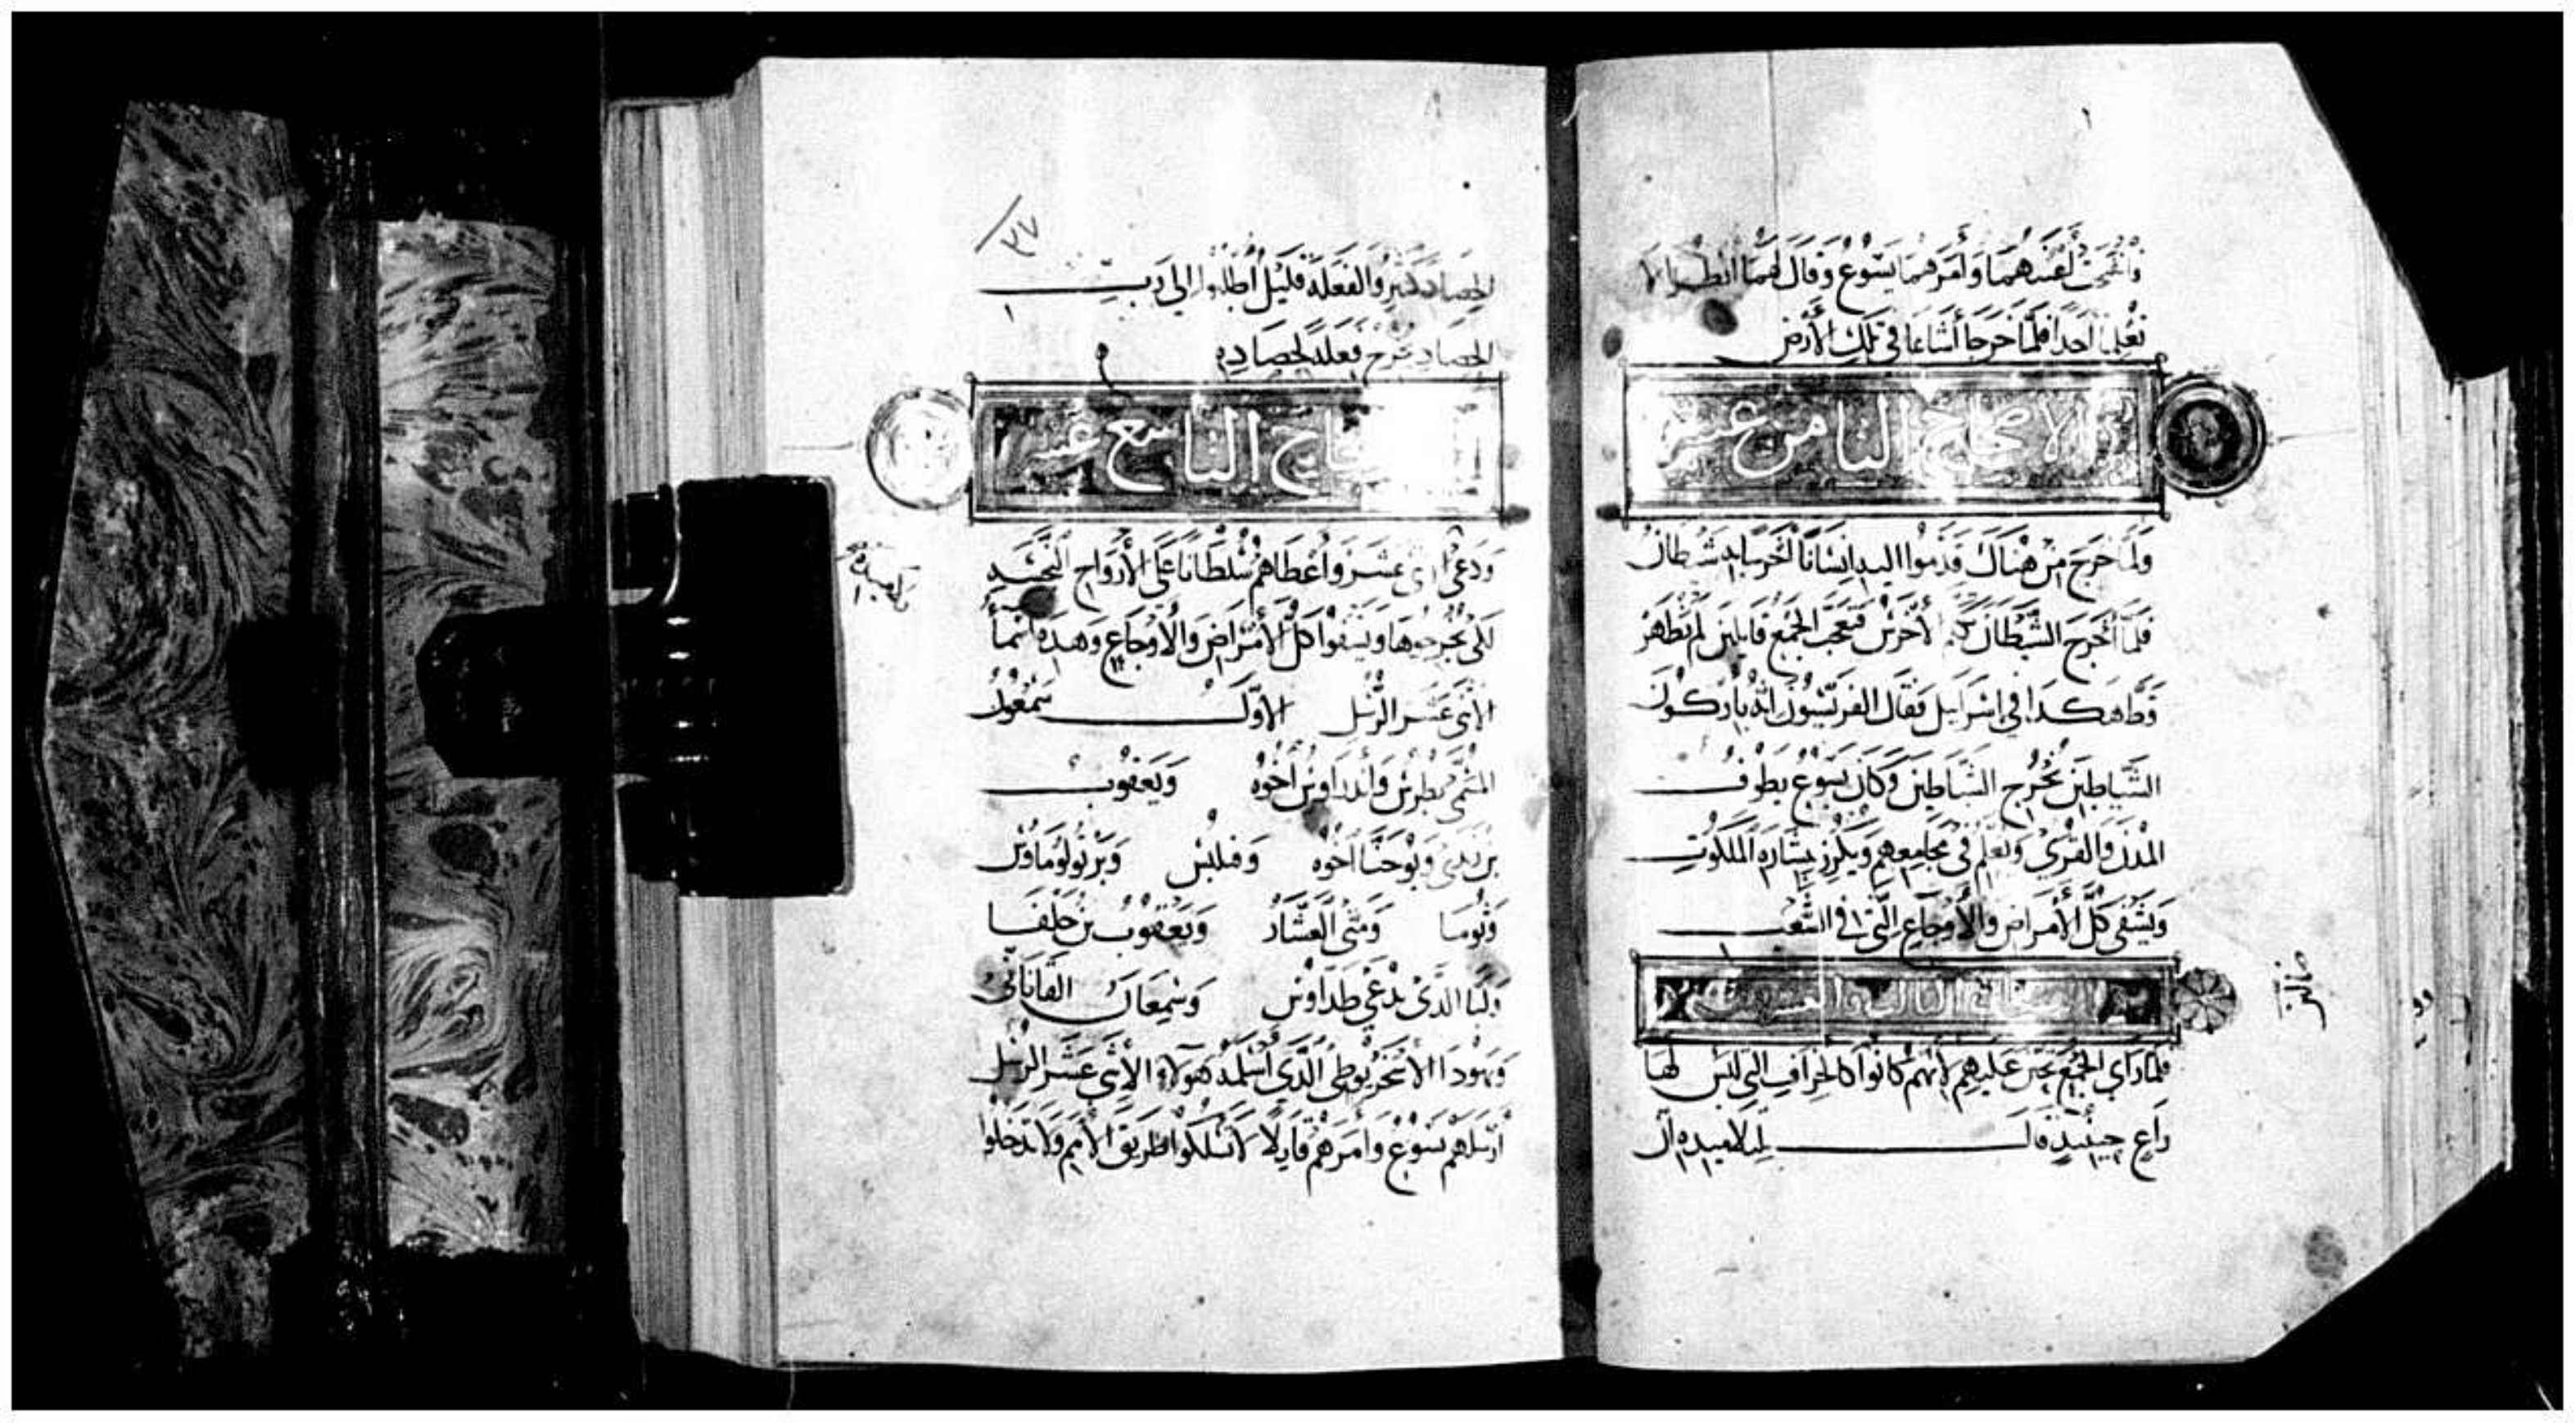 فانفتحت أعينهما وأمرهما يسوع وقال لهما انظرا لا
تعلما أحدا فلما خرجا أشاعا في تلك الأرض
الاصحاح الثامن عشر
ولما خرج من هناك قدموا اليه انسانا أخرس به شيطان
فلما أخرج الشيطان تكلم الأخرس فتعجب الجمع قايلين لم يظهر
قط هكدا في اسراييل فقال الفريسيون انه باركون
الشياطين يخرج الشياطين وكان يسوع يطوف
المدن والقرى ويعلم في مجامعهم ويكرز ببشارة الملكوت
ويشفي كل الأمراض والأوجاع التي في الشعب
فلما رأى الجمع تحنن عليهم لأنهم كانوا كالخراف التي ليس لها
راع حينيد قال لتلاميده ان
٣٧
الحصاد كثير والفعلة قليل أطلبوا إلى رب
الحصاد يخرج فعلة لحصاده
التاسع عشر
ودعى اثني عشر وأعطاهم سلطانا على الأرواح النجسة
لكي يخرجوها ويشفوا كل الأمراض والأوجاع وهده أسما
الاثنى عشر الرسل الأول سمعون
المسمى بطرس وأندراوس أخوه ويعقوب
بن زبدى ويوحنا أخوه وفيلبس وبرتولوماوس
وتوما ومتى العشار ويعقوب بن حلفا
ولبا الدي يدعى طداوس وسمعان القاناني
ويهودا الأسخريوطي الدي أسلمه هولاء الاثنى عشر الرسل
أرسلهم يسوع وأمرهم قايلا لا تسلكوا طريق الأمم ولا تدخلوا